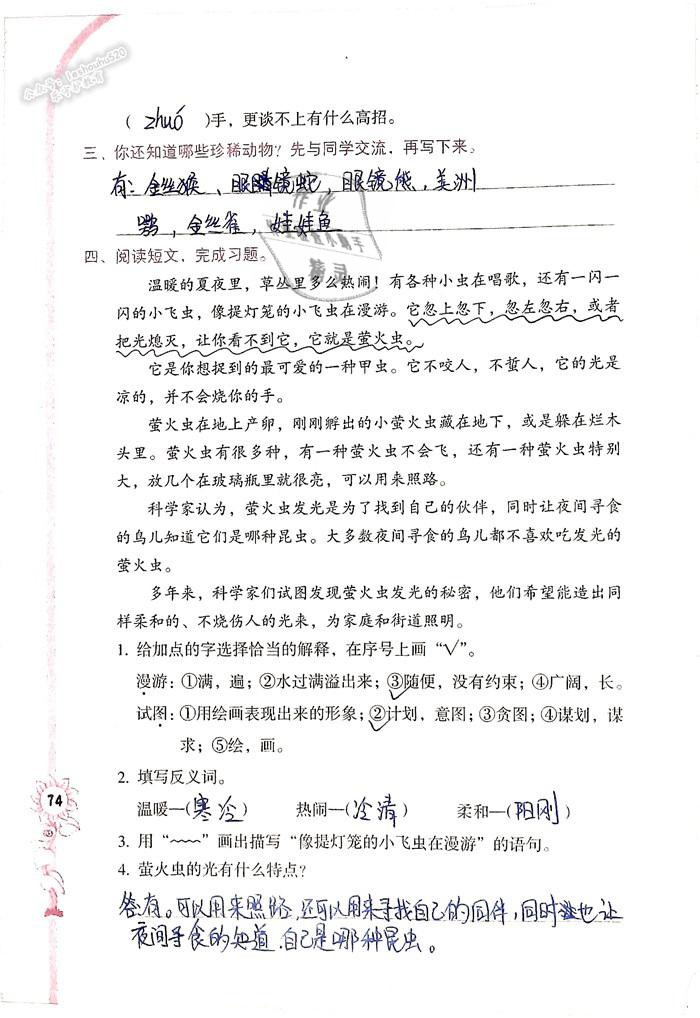 公众号: leshouhu520
乐守护教育
( zhuó )手，更谈不上有什么高招。
三、你还知道哪些珍稀动物？先与同学交流，再写下来。
有：金丝猴、眼镜蛇，眼镜熊，美洲
鹗，金丝雀，娃娃鱼
作业
精灵
四、阅读短文，完成习题。
温暖的夏夜里，草丛里多么热闹！有各种小虫在唱歌，还有一闪一
闪的小飞虫，像提灯笼的小飞虫在漫游。它忽上忽下，忽左忽右，或者
把光熄灭，让你看不到它，它就是萤火虫。
它是你想捉到的最可爱的一种甲虫。它不咬人，不蜇人，它的光是
凉的，并不会烧你的手。
萤火虫在地上产卵，刚刚孵出的小萤火虫藏在地下，或是躲在烂木
头里。萤火虫有很多种，有一种萤火虫不会飞，还有一种萤火虫特别
大，放几个在玻璃瓶里就很亮，可以用来照路。
科学家认为，萤火虫发光是为了找到自己的伙伴，同时让夜间寻食
的鸟儿知道它们是哪种昆虫。大多数夜间寻食的鸟儿都不喜欢吃发光的
萤火虫。
多年来，科学家们试图发现萤火虫发光的秘密，他们希望能造出同
样柔和的、不烧伤人的光来，为家庭和街道照明。
1. 给加点的字选择恰当的解释，在序号上画“√”。
漫游：①满，遍；②水过满溢出来；③随便，没有约束；④广阔，长。
试图：①用绘画表现出来的形象；②计划，意图；③贪图；④谋划，谋
求；⑤绘，画。
2. 填写反义词。
温暖—(寒冷) 热闹—(冷清) 柔和—(阳刚)
3. 用“﹏﹏”画出描写“像提灯笼的小飞虫在漫游”的语句。
4. 萤火虫的光有什么特点？
答:有。可以用来照路，还可以用来寻找自己的同伴，同时也让
夜间寻食的知道，自己是哪种昆虫。
74